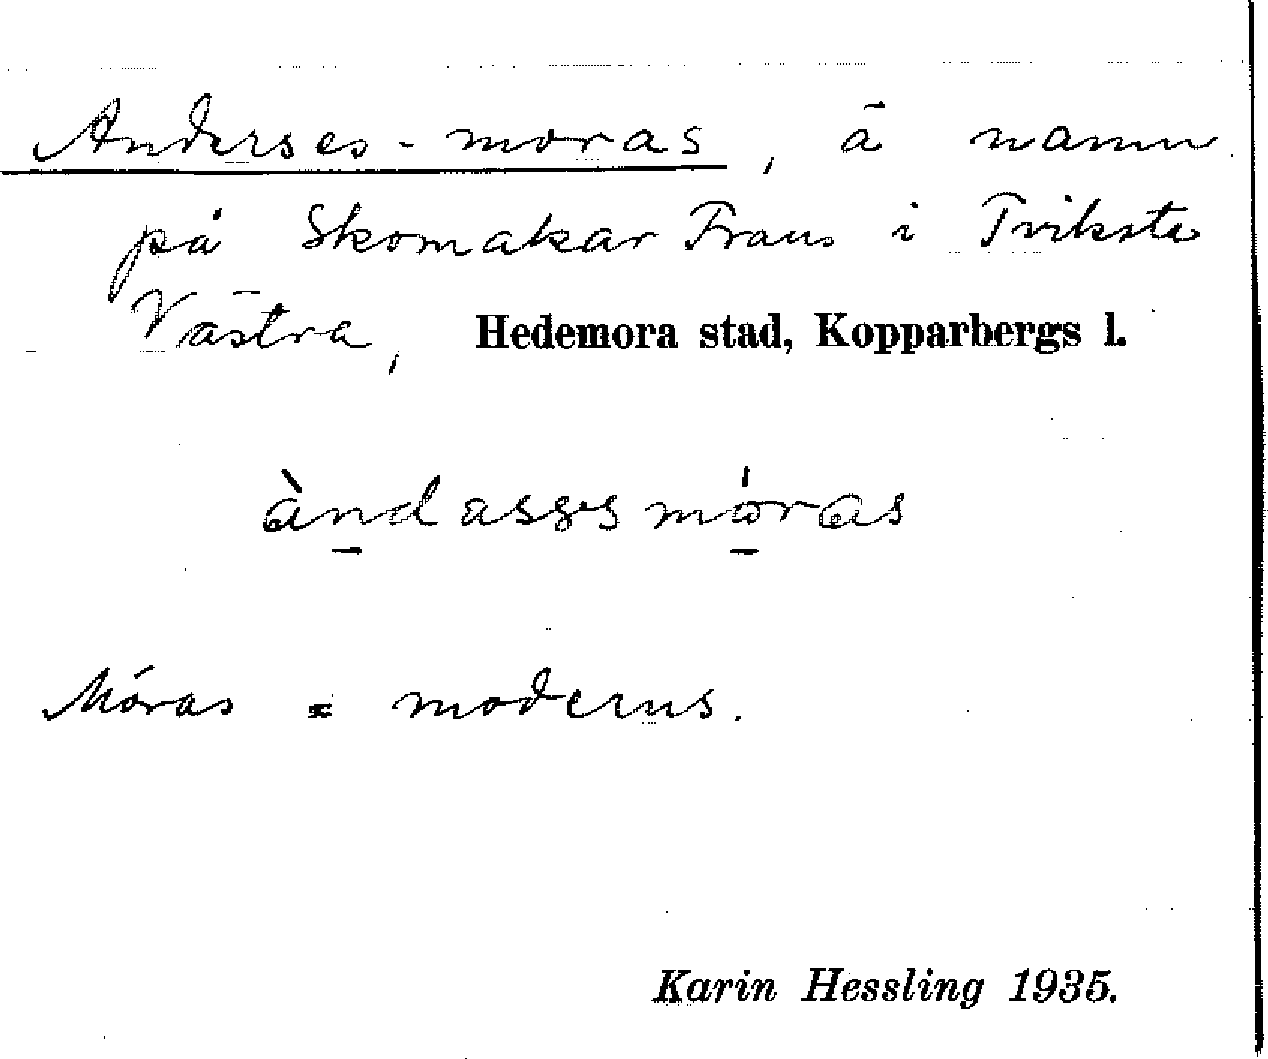 Anderses-moras, ä namn
på Skomakar Frans i Tviksta
Västra, Hedemora stad, Kopparbergs l.
àndasəsmóras
Móras = moderns.
Karin Hessling 1935.